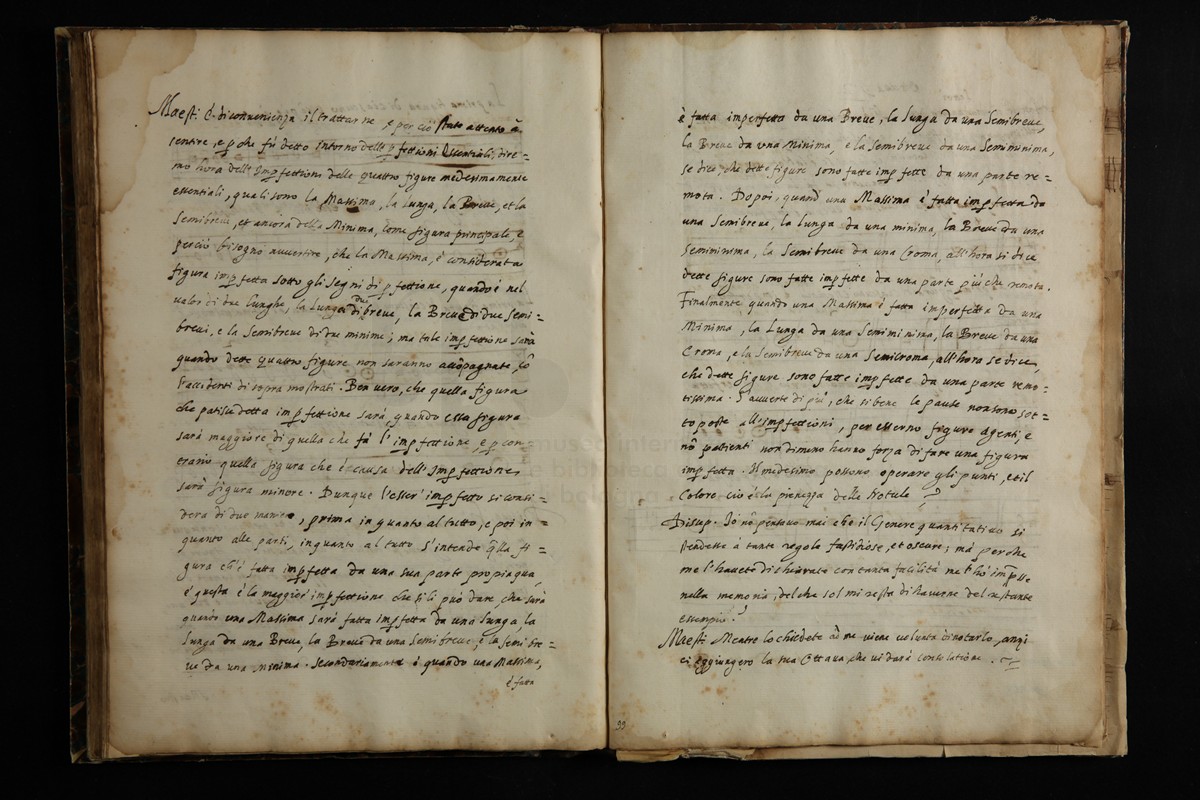 Maest: È di convenienza il trattarne e perciò state attento à
sentire, e poiche fù detto intorno delle pfettioni Essentiali, dire=
mo hora dell'Impfettioni delle quattro figure medesimamente
essentiali, quali sono la Massima, la Lunga, la Breve, et la
Semibreve, et ancora della Minima, come figura principale, è
perciò bisogno avvertire, che la Massima, è considerata
figura impfetta sotto gli segni di pfettione, quando è nel
valor di due Lunghe, la Lunga di due brevi, la Breve di due Semi=
brevi, e la Semibreve di due minime; ma tale impfettione sarà
quando dette quattro figure non saranno accōpagnate cō
l'accidenti di sopra mostrati. Ben vero, che quella figura
che patisce detta impfettione sarà, quando essa figura
sarà maggiore di quella che fà l'impfettione, e p con
trario quella figura che è causa dell'Impfettione,
sarà figura minore. Dunque l'esser' impfetto si consi=
dera di due maniere, prima in quanto al tutto, e poi in=
quanto alle parti, inquanto al tutto s'intende q̄lla fi=
gura ch'è fatta impfetta da una sua parte propinqua,
e questa è la maggior impfettione che se li può dare, che sarà
quando una Massima sarà fatta impfetta da una Lunga, la
Lunga da una Breve, la Breve da una Semibreve, e la Semibre=
ve da una minima. Secondariamente è quando una Massima,
è fatta
è fatta imperfetta da una Breve, la Lunga da una Semibreve,
la Breve da una Minima, e la Semibreve da una Semiminima,
se dice, che dette figure sono fatte impfette da una parte re=
mota. Dopoi, quand' una Massima è fatta impfetta da
una Semibreve, la Lunga da una minima, la Breve da una
Semiminima, la Semibreve da una Croma, all'hora si dice
dette figure sono fatte impfette da una parte più che remota.
Finalmente quando una Massima è fatta imperfetta da una
Minima, la Lunga da una Semiminima, la Breve da una
Croma, e la Semibreve da una Semicroma, all'hora se dice,
che dette figure sono fatte impfette da una parte remo=
tissima. S'avverte di più, che si bene le pause non sono sot=
to poste all'impfettioni, per esserno figure agenti, e
nō patienti nondimeno hanno forza di fare una figura
impfetta. Il medesimo possono operare gli punti, et il
Colore ciò è la pienezza delle Notule
Discep. Io nō pensavo mai che il Genere quantitativo si
stendesse à tante regole fastidiose, et oscure; mà perche
me l'havete dichiarate con tanta facilità me l'hò imp̄sse
nella memoria; del che sol mi resta di haverne del restante
essempio?
Maest: Mentre lo chiedete à me viene volunta di notarlo, anzi
ci aggiungerò la sua Ottava che vi darà consolatione.
99